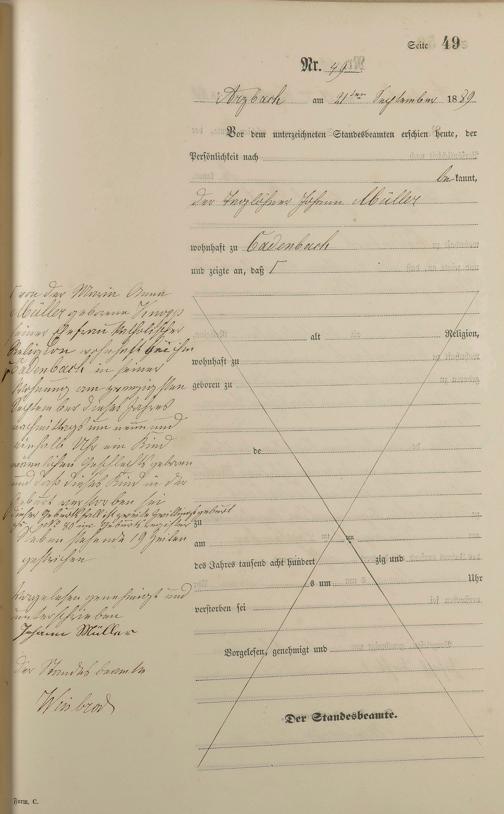 Seite 49
Nr. 49
Arzbach am 21ten September 1889
Vor dem unterzeichneten Standesbeamten erschien heute, der
Persönlichkeit nach
bekannt,
der Taglöhner Johann Müller
wohnhaft zu Cadenbach
und zeigte an, daß
von der Maria Anna
Müller geborene Knopp
seiner Ehefrau katholischer
Religion wohnhaft bei ihm
Cadenbach in seiner
Wohnung am zwanzigsten
September dieses Jahres
nachmittags um neun und
einhalb Uhr ein Kind
männlichen Geschlechts geboren
und daß dieses Kind in der
Geburt verstorben sei
dieser Geburtsfall ist zweite Zwillingsgeburt
Nebenstehende 19 Zeilen
gestrichen
Vorgelesen genehmigt und
unterschrieben
Johann Müller
Der Standesbeamte
alt Religion,
wohnhaft zu
geboren zu
de
zu
am
des Jahres tausend acht hundert zig und
um Uhr
verstorben sei
Vorgelesen, genehmigt und
Der Standesbeamte.
Form. C.